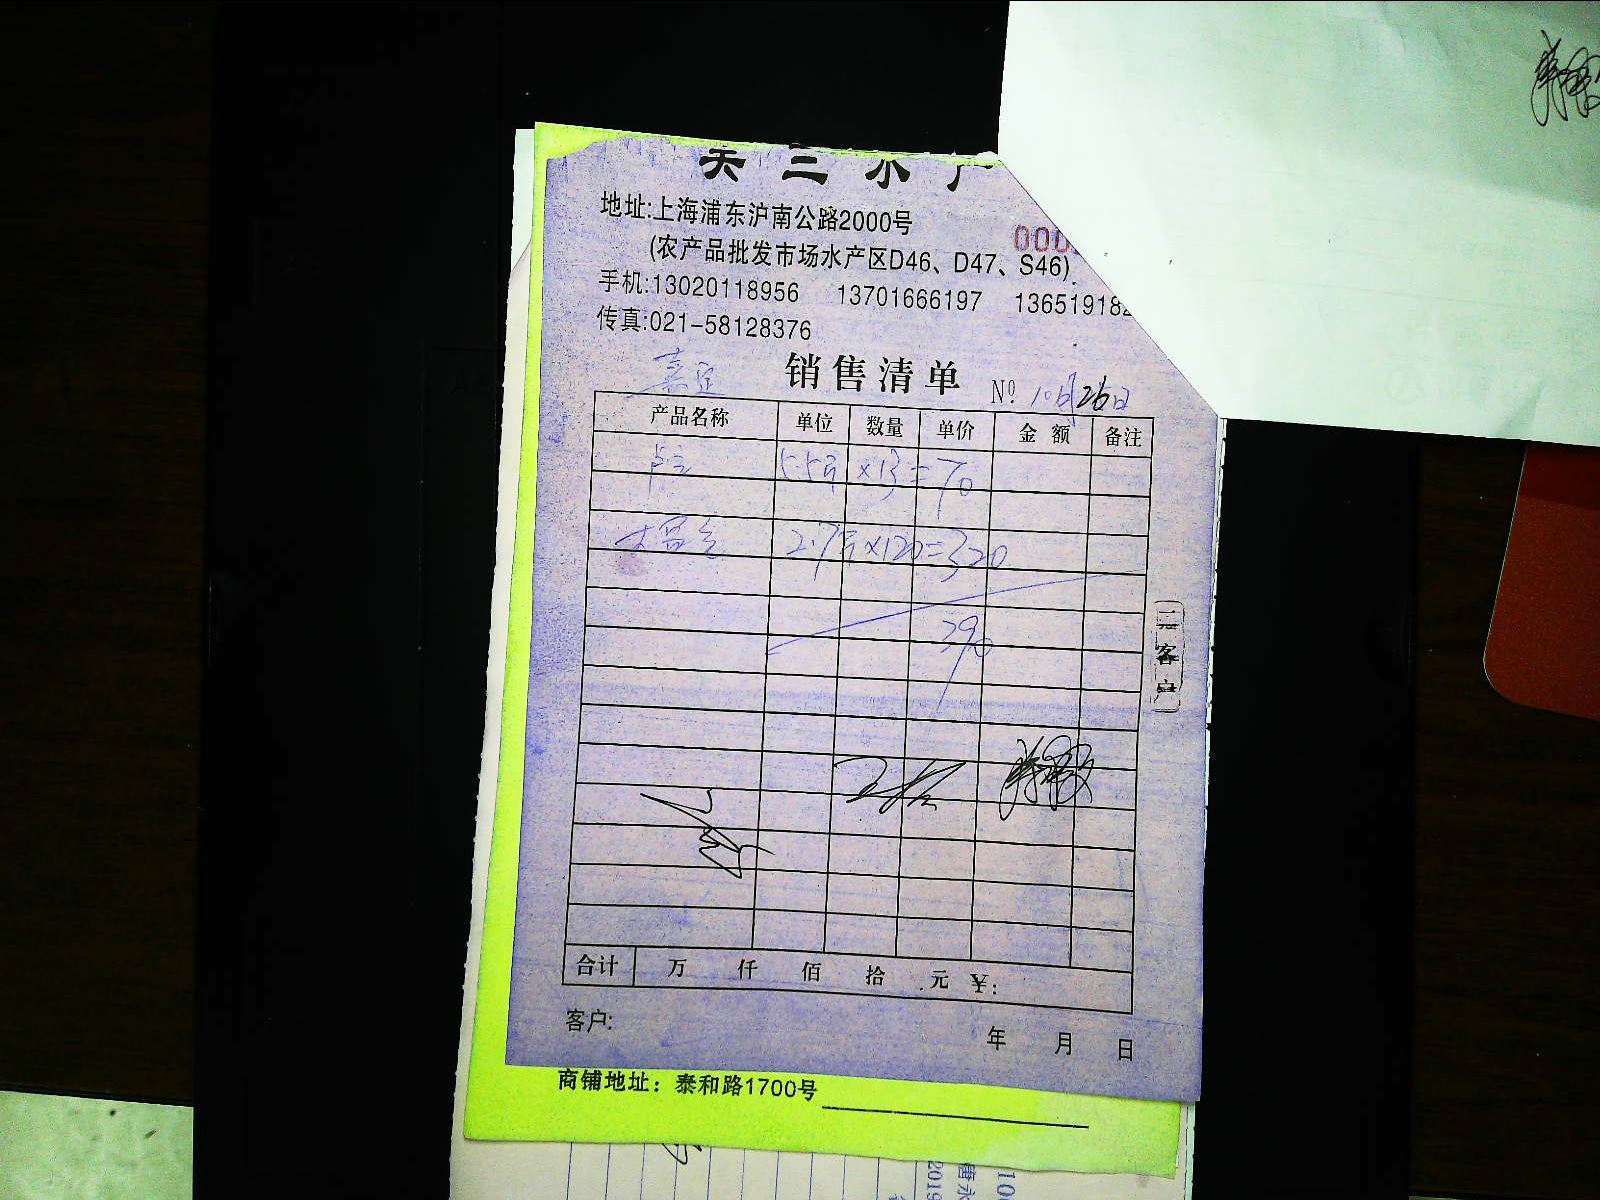 三水产
地址:上海浦东沪南公路2000号
000
(农产品批发市场水产区D46、D47、S46)
手机:13020118956 13701666197 136519182
传真:021-58128376
嘉定
销售清单 Nº 10月26日
产品名称 单位 数量 单价 金额 备注
5.5斤×13=70
2.7斤×120=320
390
二客户
合计 万 仟 佰 拾 元 ¥:
客户:
年 月 日
商铺地址：泰和路1700号
2019